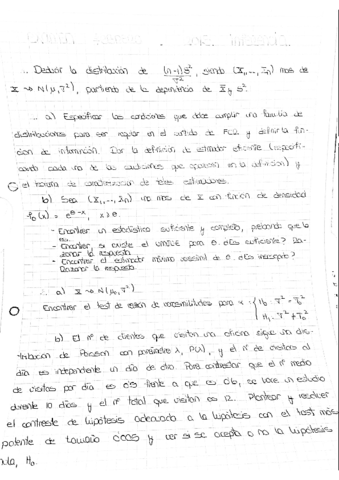 Deducir la distribución de (n-1)S²/σ², siendo (X₁,..., Xₙ) mas de
X → N(μ, σ²), partiendo de la dependencia de X̄ y S².
a) Especificar las condiciones que debe cumplir una familia de
distribuciones para ser regular en el sentido de FCR y definir la fun-
ción de información. Dar la definición de estimador eficiente (
cando cada una de las condiciones que aparecen en la definición) y
el teorema de caracterización de tales estimadores.
b) Sea (X₁,..., Xₙ) una mas de X con función de densidad
f_θ(x) = e^(θ-x), x ≥ θ.
- Encontrar un estadístico suficiente y completo, probando que lo
- Encontrar, si existe el UMVUE para θ. ¿Es suficiente? Ra-
zonar la respuesta
- Encontrar el estimador máximo verosímil de θ. ¿Es insesgado?
Razonar la respuesta
a) X → N(μ, σ²)
Encontrar el test de razón de verosimilitudes para
b) El nº de clientes que visitan una oficina sigue una dis-
tribución de Poisson con parámetro λ, P(λ), y el nº de visitas al
día es independiente un día de otro. Para contrastar que el nº medio
de visitas por día es frente a que es, se hace un estudio
durante 10 días y el nº total que visitan es 12. Plantear y resolver
el contraste de hipótesis adecuado a la hipótesis con el test más
potente de tamaño 0'005 y ver si se acepta o no la hipótesis
nula, H₀.